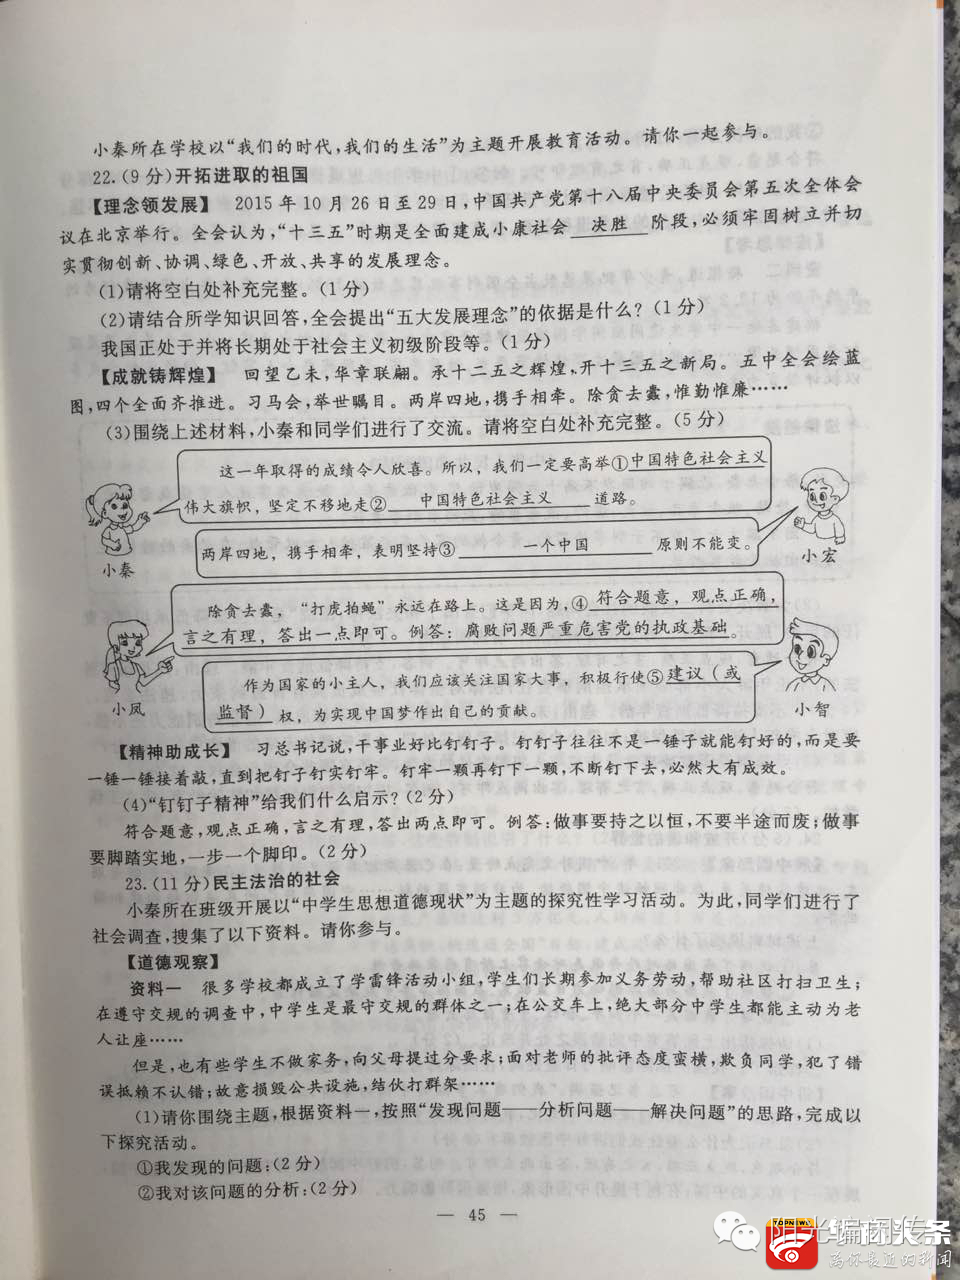 小秦所在学校以“我们的时代,我们的生活”为主题开展教育活动。请你一起参与。
22.(9分)开拓进取的祖国
【理念领发展】 2015年10月26日至29日,中国共产党第十八届中央委员会第五次全体会
议在北京举行。全会认为,“十三五”时期是全面建成小康社会 决胜 阶段,必须牢固树立并切
实贯彻创新、协调、绿色、开放、共享的发展理念。
(1)请将空白处补充完整。(1分)
(2)请结合所学知识回答,全会提出“五大发展理念”的依据是什么?(1分)
我国正处于并将长期处于社会主义初级阶段等。(1分)
【成就铸辉煌】 回望乙未,华章联翩。承十二五之辉煌,开十三五之新局。五中全会绘蓝
图,四个全面齐推进。习马会,举世瞩目。两岸四地,携手相牵。除贪去蠹,惟勤惟廉……
(3)围绕上述材料,小秦和同学们进行了交流。请将空白处补充完整。(5分)
这一年取得的成绩令人欣喜。所以,我们一定要高举①中国特色社会主义
伟大旗帜,坚定不移地走② 中国特色社会主义 道路。
小秦
两岸四地,携手相牵,表明坚持③ 一个中国 原则不能变。
小宏
除贪去蠹,“打虎拍蝇”永远在路上。这是因为,④符合题意,观点正确,
言之有理,答出一点即可。例答:腐败问题严重危害党的执政基础。
小凤
作为国家的小主人,我们应该关注国家大事,积极行使⑤建议(或
监督)权,为实现中国梦作出自己的贡献。
小智
【精神助成长】 习总书记说,干事业好比钉钉子。钉钉子往往不是一锤子就能钉好的,而是要
一锤一锤接着敲,直到把钉子钉实钉牢。钉牢一颗再钉下一颗,不断钉下去,必然大有成效。
(4)“钉钉子精神”给我们什么启示?(2分)
符合题意,观点正确,言之有理,答出两点即可。例答:做事要持之以恒,不要半途而废;做事
要脚踏实地,一步一个脚印。(2分)
23.(11分)民主法治的社会
小秦所在班级开展以“中学生思想道德现状”为主题的探究性学习活动。为此,同学们进行了
社会调查,搜集了以下资料。请你参与。
【道德观察】
资料一 很多学校都成立了学雷锋活动小组,学生们长期参加义务劳动,帮助社区打扫卫生;
在遵守交规的调查中,中学生是最守交规的群体之一;在公交车上,绝大部分中学生都能主动为老
人让座……
但是,也有些学生不做家务,向父母提过分要求;面对老师的批评态度蛮横,欺负同学,犯了错
误抵赖不认错;故意损毁公共设施,结伙打群架……
(1)请你围绕主题,根据资料一,按照“发现问题——分析问题——解决问题”的思路,完成以
下探究活动。
①我发现的问题:(2分)
②我对该问题的分析:(2分)
— 45 —
TOPNEWS
头条
离你最近的新闻